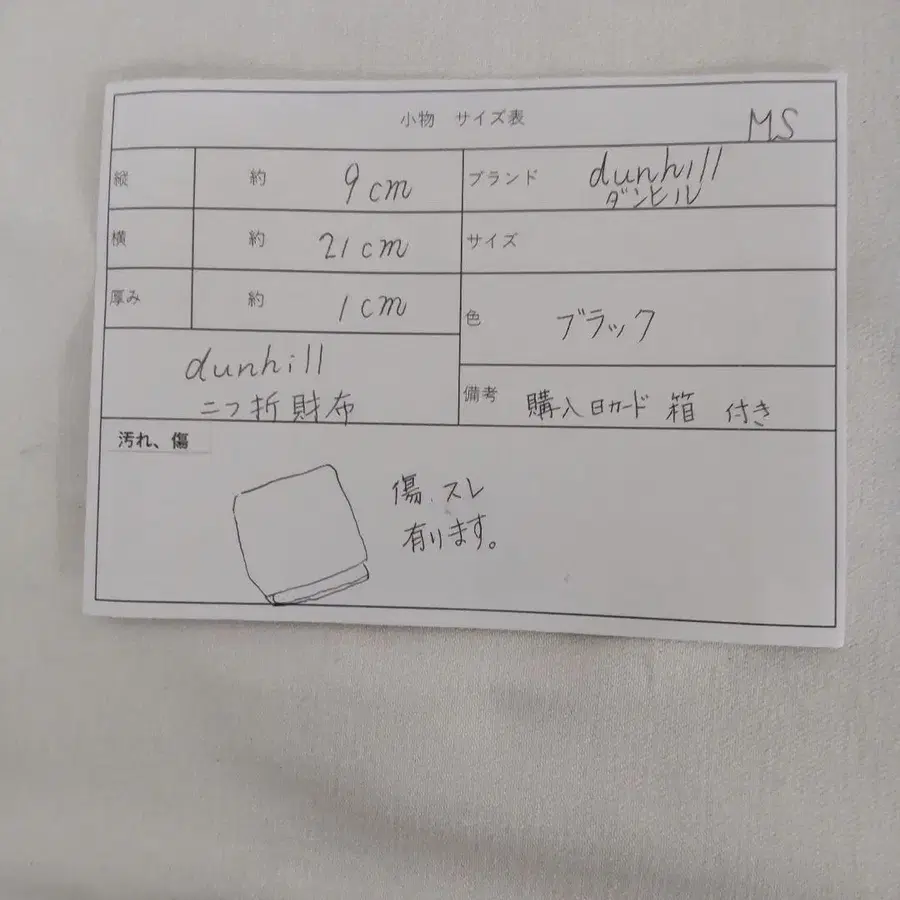 小物 サイズ表
MS
縦 約 9cm
ブランド dunhill
ダンヒル
横 約 21cm
サイズ
厚み 約 1cm
色 ブラック
dunhill
二つ折財布
備考 購入日カード 箱 付き
汚れ、傷
傷、スレ
有ります。